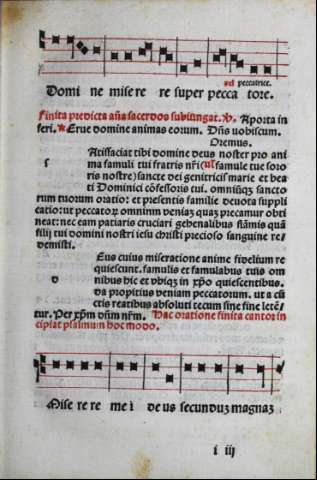 vel peccatrice.
Domi ne mise re re super pecca tore.
Finita predicta aña sacerdos subiungat. ℣. A porta in
feri. ℟ Erue domine animas eorum. Dñs vobiscum.
Oremus.
s Atiffaciat tibi domine deus noster pro ani
ma famuli tui fratris nr̃i (vl famule tue soro
ris nostre) sancte dei genitricis marie et bea
ti Dominici cõfessoris tui. omniũq3 sancto
rum tuorum oratio: et presentis familie deuota suppli
catio: vt peccator omnium veniaz quaz precamur obti
neat: nec eam patiaris cruciari gehēnalibus flãmis quã
filij tui domini nostri iesu christi precioso sanguine re-
demisti.
d Eus cuius miseratione anime fidelium re
quiescunt. famulis et famulabus tuis om
nibus hic et vbiq3 in xp̃o quiescentibus.
da propitius veniam peccatorum. vt a cũ
ctis reatibus absoluti tecum sine fine lete̅-
tur. Per xp̃m dñm nr̃m. Hac oratione finita cantor in
cipiat psalmum hoc modo.
Mise re re me i de us secunduz magnaz
i iij